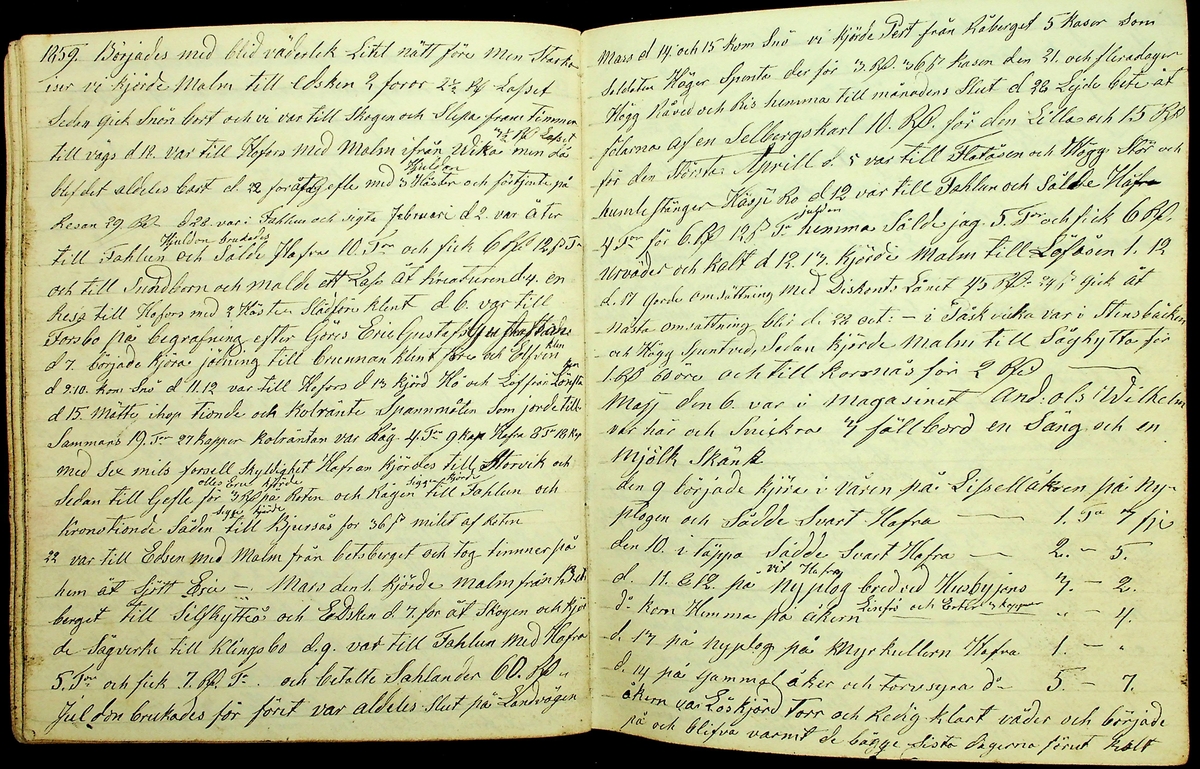 1859. Börjades med blid väderlek Likt nått före men Starka
iser vi kjörde Malm till Edsken 2 foror 2½ Rd Lasset
Sedan gick Snön bort och vi var till Skogen och Slepa fram Timmer
till vägs d 11. var till Hofors med Malm ifrån Vika 3½ Rd Lasset min då
blef det aldeles bart d. 22 for åt Gefle med 3 Hästar och förtjente på
Hjuldon
Resan 29 Rd. d 28. var i Fahlun och sigte Februari d 2. var åter
till Fahlun och Sålde Hafra 10. Tr och fick 6 Rd 12 s Tr
Hjuldon brukades
och till Sundborn och malde ett Lass åt kreaturen d 4. en
Resa till Hofors med 2 Hästar Slädföre klent d 6. var till
Forsbo på begrafning efter Görs Eric Gustafs Gustafs
d 7. började kjöra jolning till brunnan klint före och
d 9 10. kom Snö d 11. 12 var till Hofors d 13 kjörd Hö och Löf från
d 15. Mätte ihop tionde och kolränte Spannmålen Som jorde till-
Sammans 19 Tr 27 kappor kolräntan var Råg 4. Tr 9 kap Hafra 8 Tr 18 kp
med Sex mils forsell skyldighet Hafran kjördes till Storvik och
Sedan till Gefle för 3 Rd på Resen och Rågen till Fahlun och
kronotionde Säden till Bjursås för 36 s milet af Resen
22 var till Edsken med Malm från betsberget och tog timmer på
hem åt Sjött Eric — Mars den 1. kjörde malm från Bets
berget till Silfhytteå och Edsken d. 7. for åt Skogen och kjör
de Sågverke till Klingsbo d. 9. var till Fahlun med Hafra
5. Tr och fick 7. Rd. Tr. och betalte Sahlander 60. Rd
Juldon brukades för föret var aldeles Slut på Landvägen
Mars d 14 och 15 kom Snö vi kjörde Tört från Råberget 5 kaser Som
Soldaten Höger Spenta der för 3. Rd. 36 s kasen den 21. och flera dagar
Högg Råved och Ris hemma till månadens Slut d 26 Lejde bete åt
fölarna af en Selbergskarl 10. Rd. för den Lilla och 15 Rd
för den Större Aprill d. 5 var till Flotåsen och Högg Stör och
humle Stänger Häsje Ro d 12 var till Fahlun och Sålde Hafra
4 Tr för 6. Rd 12 s Tr hemma Sålde jag. 5. Tr och fick 6 Rd.
Urväder och kalt d 12. 13. kjörde Malm till Löfåsen 1. 12
d. 17 gorde omsättning med Diskonts Lånet 45 Rd. gick åt
nästa omsättning bli d. 22 oct. — i Påsk vika var i Stensbäcken
och Högg Spentved, Sedan kjörde malm till Såghytta för
1. Rd 60 öre och till korsnäs för 2 Rd —
Majj den 6. var i magasinet And: ols: Wilhelm
var här och Snickra 3 fällbord en Säng och en
Mjölk Skänk
den 9 började kjöra i våren på Lissellåkren på ny-
plogen och Sådde Svart Hafra — 1. Tu 7 fj
den 10. i täppa Sådde Svart Hafra — 2. – 5.
d. 11. & 12. på nyplog bredved Husbyjens 3. – 2.
vit Hafra
do korn Hemma på åkern Linfrö och Erter 3 kappor " – 4.
d. 13 på nyplog på Myrkullern Hafra 1. – "
d. 14 på Gammal åker och torvsyra do 5 – 7.
åkern var Löskjord Torr och Redig klart väder och började
på och blifva varmt de bägge Sista dagarna förut kalt